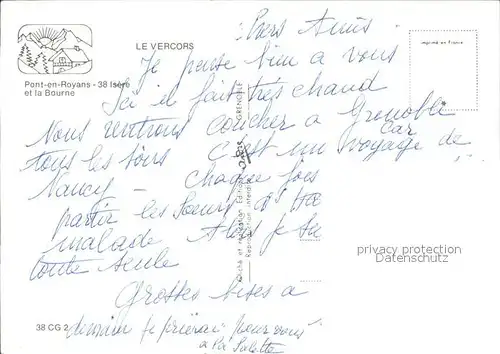 LE VERCORS
Pont-en-Royans - 38 Isère
et la Bourne
imprimé en France
Chers Amis
Je pense bien a vous
Ici il fait très chaud
Nous rentrons coucher a Grenoble
tous les soirs C'est un voyage car de
Nancy - chaque fois
partir les Soeurs
malade Alors je suis
toute seule
Grosses bises a
je prierai pour vous
a La Salette
GRENOBLE
Cliché et réalisation Editions
Reproduction interdite
38 CG 2
privacy protection
Datenschutz